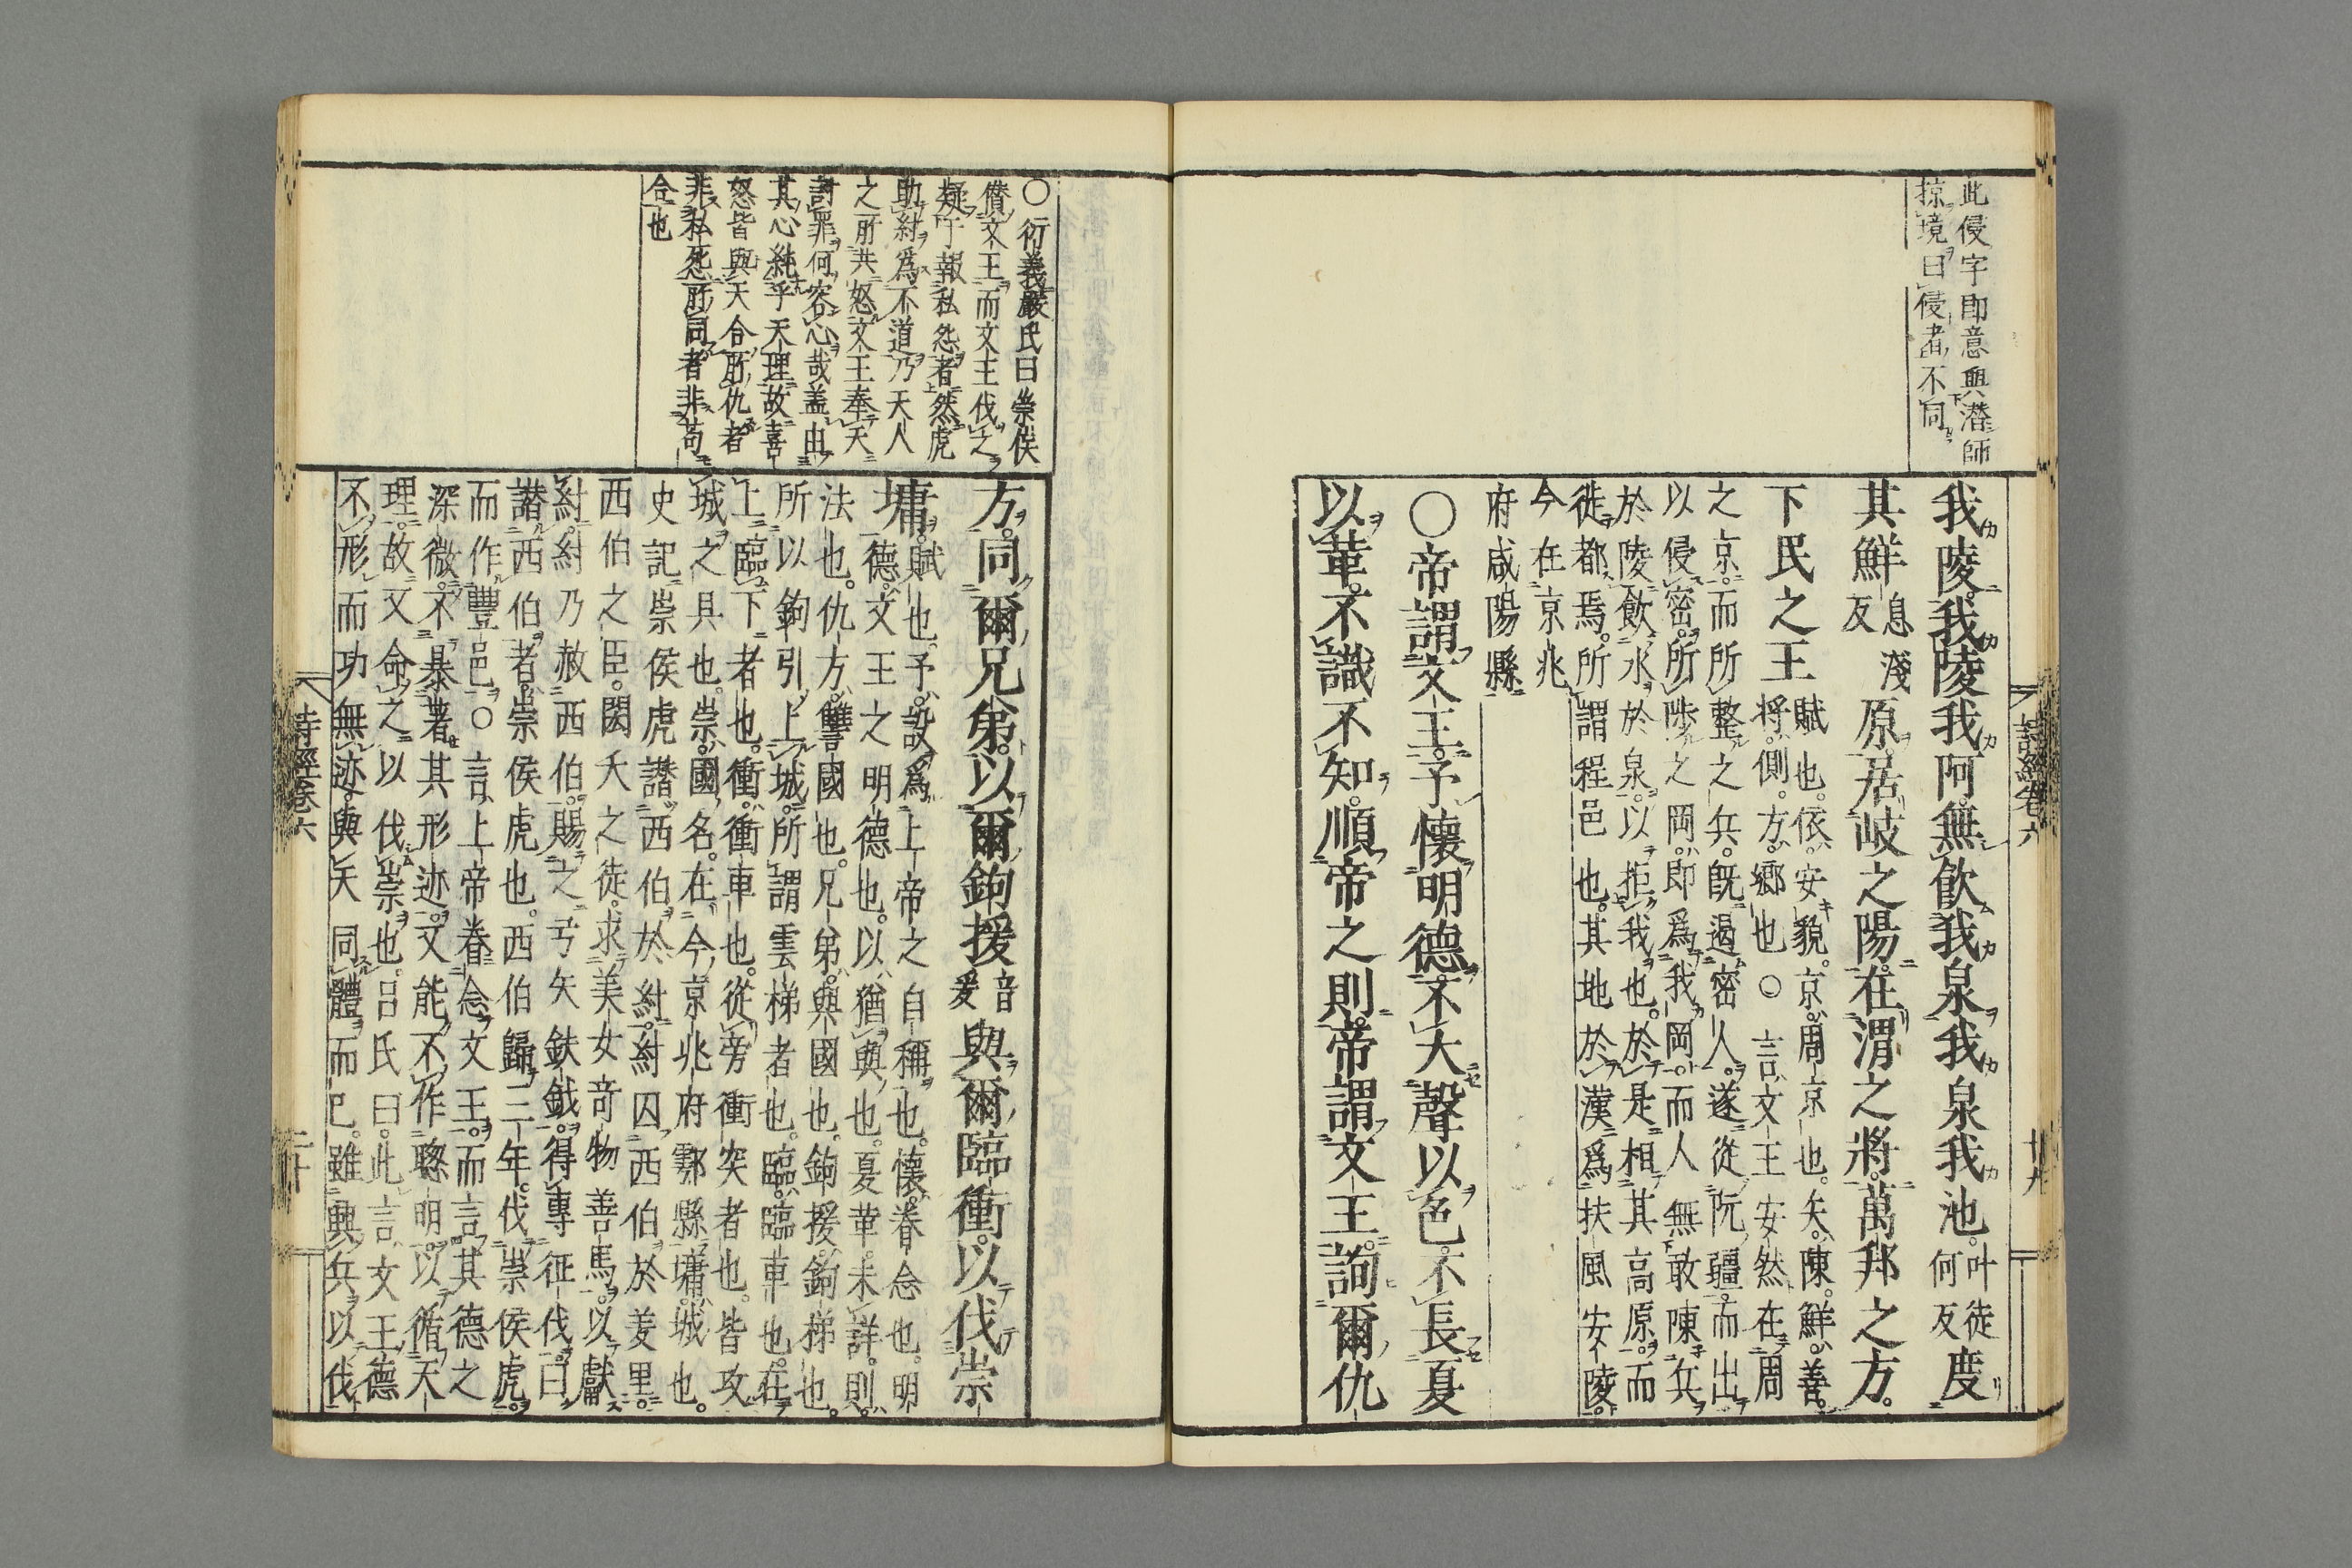 此侵字卽意與潛師
掠境曰侵者不同
我陵我陵我阿無飲我泉我泉我池叶徒何反度
其鮮息淺反原居岐之陽在渭之將萬邦之方
下民之王賦也依安貌京周京也矢陳鮮善
將側方鄉也○言文王安然在周
之京而所整之兵旣遏密人遂從阮疆而出
以侵密所陟之岡卽爲我岡而人無敢陳兵
於陵飲水於泉以拒我也於是相其高原而
徙都焉所謂程邑也其地於漢爲扶風安陵
今在京兆
府咸陽縣
○帝謂文王予懷明德不大聲以色不長夏
以革不識不知順帝之則帝謂文王詢爾仇
詩經卷六
廿九
○衍義嚴氏曰崇侯
僭文王而文王伐之
疑于報私怨者然虎
助紂爲不道乃天人
之所共怒文王奉天
討罪何容心哉蓋由
其心純乎天理故喜
怒皆與天合所仇者
非私怨所同者非苟
合也
方同爾兄弟以爾鉤援音爰與爾臨衝以伐崇
墉賦也予設爲上帝之自稱也懷眷念也明
德文王之明德也以猶與也夏革未詳則
法也仇方讐國也兄弟與國也鉤援鉤梯也
所以鉤引上城所謂雲梯者也臨臨車也在
上臨下者也衝衝車也從旁衝突者也皆攻
城之具也崇國名在今京兆府鄠縣墉城也
史記崇侯虎譖西伯於紂紂囚西伯於羑里
西伯之臣閎夭之徒求美女奇物善馬以獻
紂紂乃赦西伯賜之弓矢鈇鉞得專征伐曰
譖西伯者崇侯虎也西伯歸三年伐崇侯虎
而作豐邑○言上帝眷念文王而言其德之
深微不暴著其形迹又能不作聰明以循天
理故又命之以伐崇也呂氏曰此言文王德
不形而功無迹與天同體而已雖興兵以伐
詩經卷六
三十